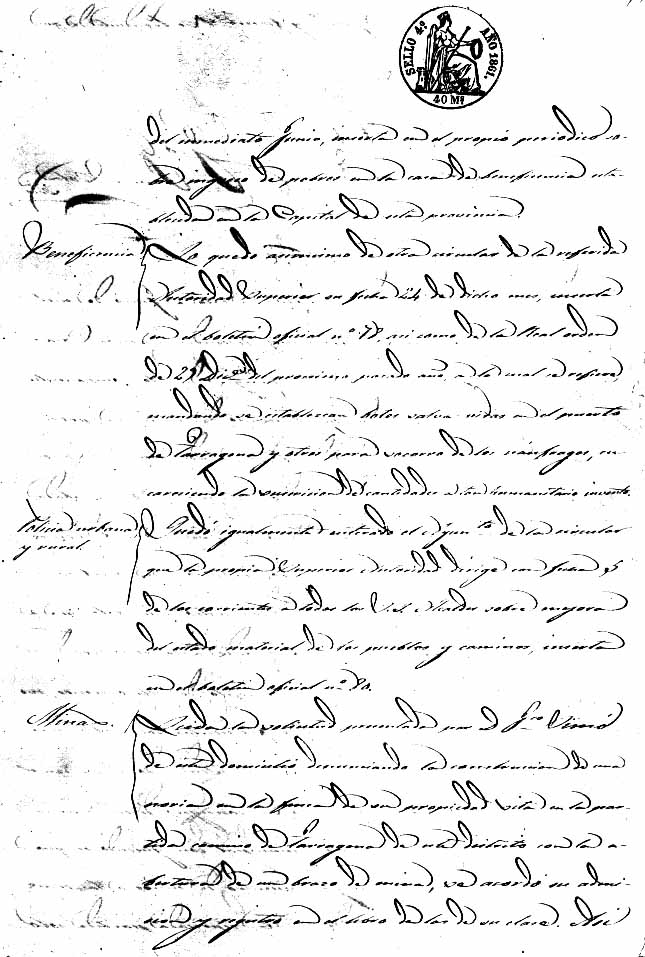 SELLO 4º AÑO 1861.
40 Ms
del inmediato Junio, inserta en el propio periodico so-
bre ingreso de pobres en la casa de beneficencia esta-
blecida en la Capital de esta provincia.
Beneficencia
Lo quedó asimismo de otra circular de la referida
Autoridad Superior en fecha 24 de dicho mes, inserta
en el boletin oficial nº 78, asi como de la Real orden
de 29 Dize del proximo pasado año, a la cual se refiere,
mandando se establezcan botes salva-vidas en el puerto
de Tarragona y otros para socorro de los náufragos, en-
careciendo la suscricion de cantidades a tan humanitario invento.
Policia urbana
y rural.
Quedó igualmente enterado el Ayunto de la circular
que la propia Superior Autoridad dirige con fecha 5
de los corrientes a todos los S.S. Alcaldes sobre mejora
del estado material de los pueblos y caminos, inserta
en el boletin oficial nº 80.
Mina.
Leida la solicitud presentada por D. Fco Simó
de este domicilio denunciando la construccion de una
noria en la finca de su propiedad sita en la par-
tida camino de Tarragona de este distrito con la a-
bertura de un brazo de mina, se acordó su admi-
sion y registro en el libro de los de su clase. Asi